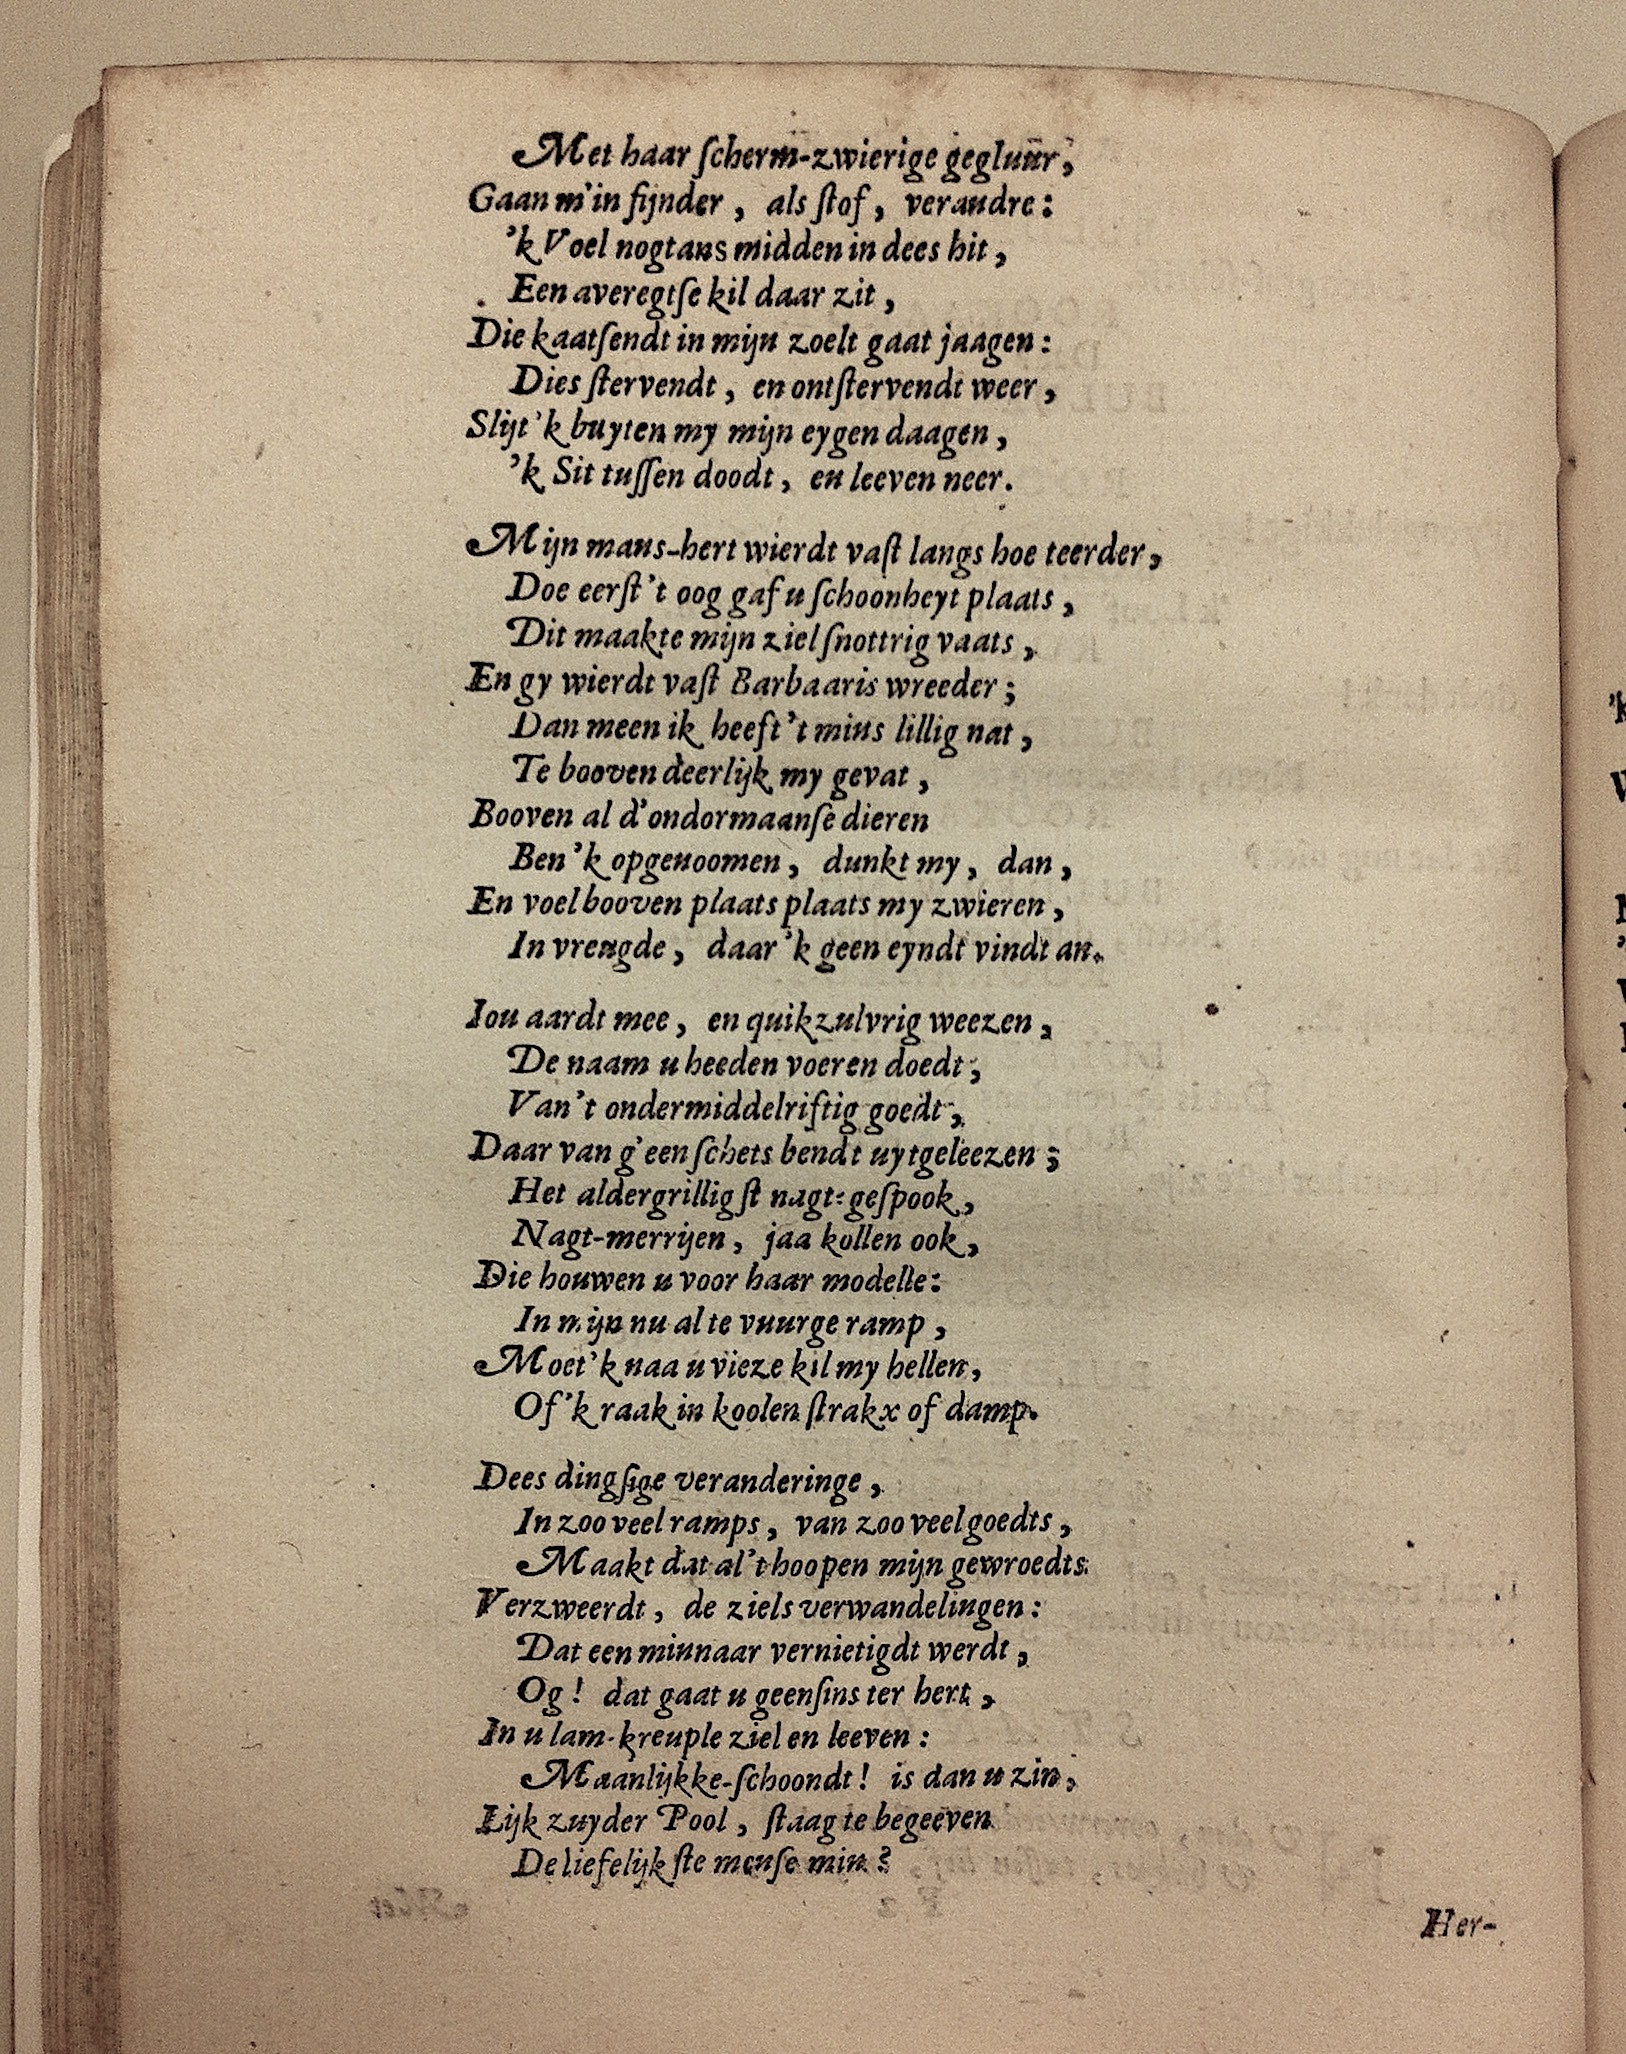 Met haar ſcherm-zwierige gegluur,
Gaan m'in fijnder, als ſtof, verandre:
'k Voel nogtans midden in dees hit,
Een averegtſe kil daar zit,
Die kaatſendt in mijn zoelt gaat jaagen:
Dies ſtervendt, en ontſtervendt weer,
Slijt 'k buyten my mijn eygen daagen,
'k Sit tuſſen doodt, en leeven neer.
Mijn mans-hert wierdt vaſt langs hoe teerder,
Doe eerſt 't oog gaf u ſchoonheyt plaats,
Dit maakte mijn ziel ſnottrig vaats,
En gy wierdt vaſt Barbaaris wreeder;
Dan meen ik heeft 't mins lillig nat,
Te booven deerlijk my gevat,
Booven al d'ondormaanſe dieren
Ben 'k opgenoomen, dunkt my, dan,
En voel booven plaats plaats my zwieren,
In vreugde, daar 'k geen eyndt vindt an.
Iou aardt mee, en quikzulvrig weezen,
De naam u heeden voeren doedt;
Van 't ondermiddelriftig goedt,
Daar van g'een ſchets bendt uytgeleezen;
Het aldergrilligſt nagt-geſpook,
Nagt-merrijen, jaa kollen ook,
Die houwen u voor haar modelle:
In mijn nu al te vuurge ramp,
Moet 'k naa u vieze kil my hellen,
Of 'k raak in koolen ſtrakx of damp.
Dees dingſige veranderinge,
In zoo veel ramps, van zoo veel goedts,
Maakt dat al 't hoopen mijn gewroedts
Verzweerdt, de ziels verwandelingen:
Dat een minnaar vernietigdt werdt,
Og! dat gaat u geenſins ter hert,
In u lam-kreuple ziel en leeven:
Maanlijkke-ſchoondt! is dan u zin,
Lijk zuyder Pool, ſtaag te begeeven
De liefelijkſte menſe min?
Her-